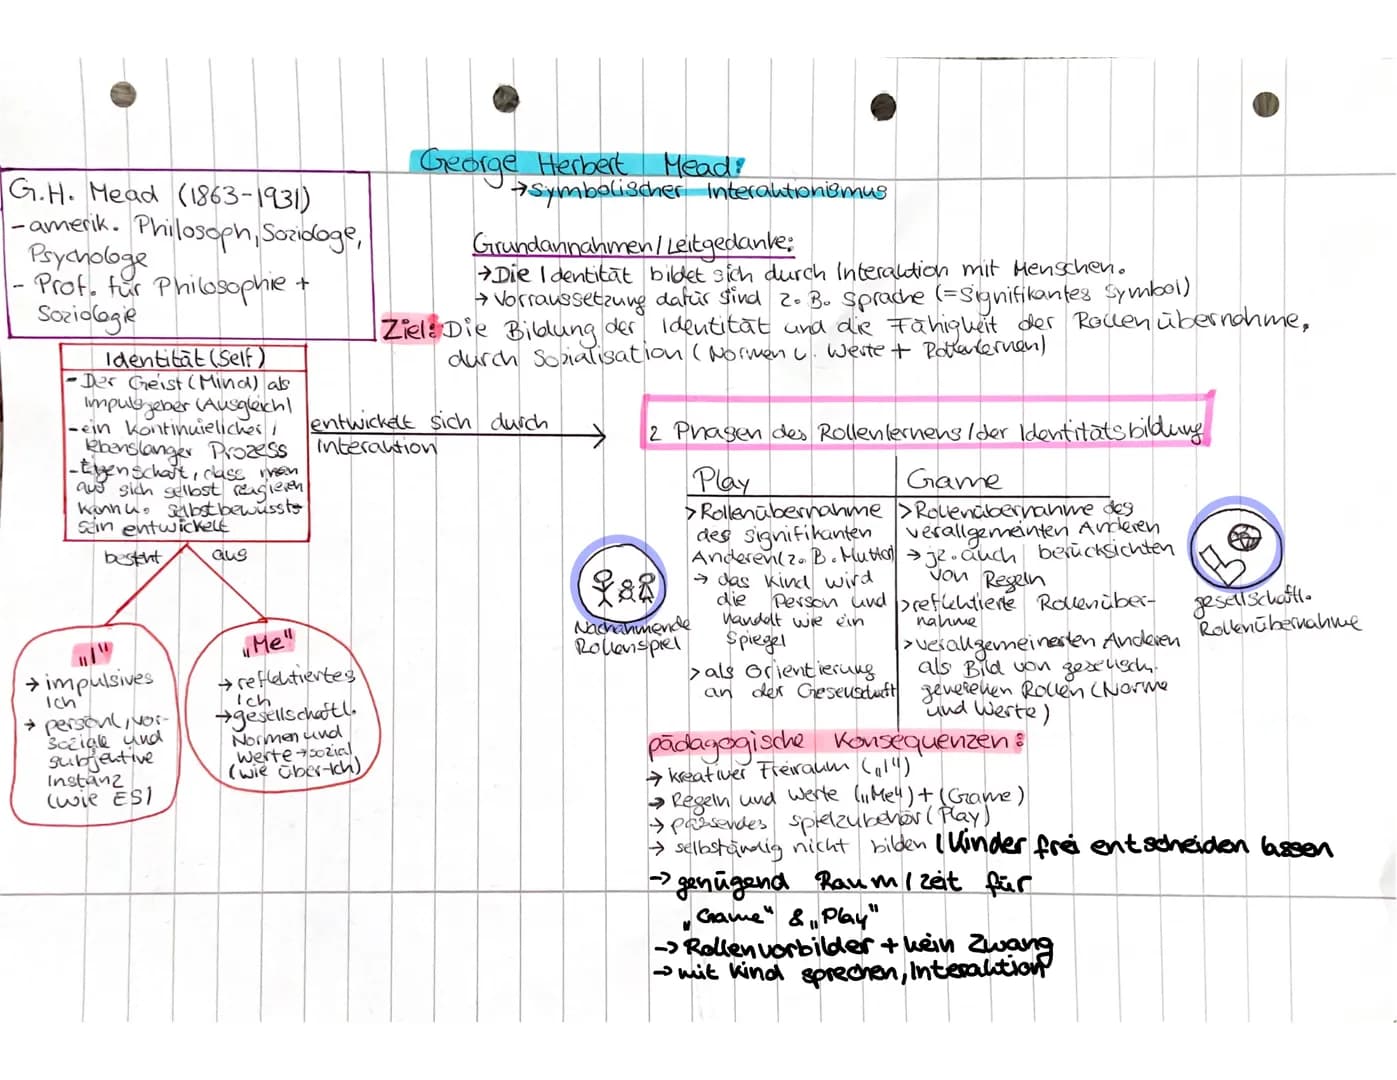 George Herbert Mead:
→ Symbolischer Interaktionismus
G.H. Mead (1863-1931)
- amerik. Philosoph, Soziologe,
Psychologe
- Prof. für Philosophie +
Soziologie
Grundannahmen/Leitgedanke:
→ Die Identität bildet sich durch Interaktion mit Menschen.
→ Vorraussetzung dafür sind z.B. Sprache (=Signifikantes Symbol)
Ziel: Die Bildung der Identität und die Fähigkeit der Rollenübernahme,
durch Sozialisation (Normen u. Werte + Rollenlernen)
Identität (Self)
- Der Geist (Mind) als
Impulsgeber (Ausgleich)
- ein kontinuielicher,
lebenslanger Prozess
- Eigenschaft, dass man
auf sich selbst reagieren
kann u. Selbstbewusst-
sein entwickelt
entwickelt sich durch
Interaktion
besteht aus
„I"
→ impulsives
Ich
→ persönl., vor-
soziale und
subjektive
Instanz
(wie ES)
„Me"
→ reflektiertes
Ich
→ gesellschaftl.
Normen und
Werte → sozial
(wie Über-Ich)
2 Phasen des Rollenlernens/der Identitätsbildung
Play
> Rollenübernahme
des signifikanten
Anderen (z.B. Mutter)
→ das Kind wird
die Person und
handelt wie ein
Spiegel
> als Orientierung
an der Gesellschaft
Nachahmende
Rollenspiel
Game
> Rollenübernahme des
verallgemeinten Anderen
→ jz. auch berücksichten
von Regeln
> reflektierte Rollenüber-
nahme
> verallgemeinerten Anderen
als Bild von gesellsch.
generellen Rollen (Norme
und Werte)
gesellschaftl.
Rollenübernahme
pädagogische Konsequenzen:
→ kreativer Freiraum („I")
→ Regeln und Werte („Me") + (Game)
→ passendes Spielzubehör (Play)
→ selbständig nicht bilden (Kinder frei entscheiden lassen
→ genügend Raum/Zeit für
„Game" & „Play"
→ Rollenvorbilder + kein Zwang
→ mit Kind sprechen, Interaktion